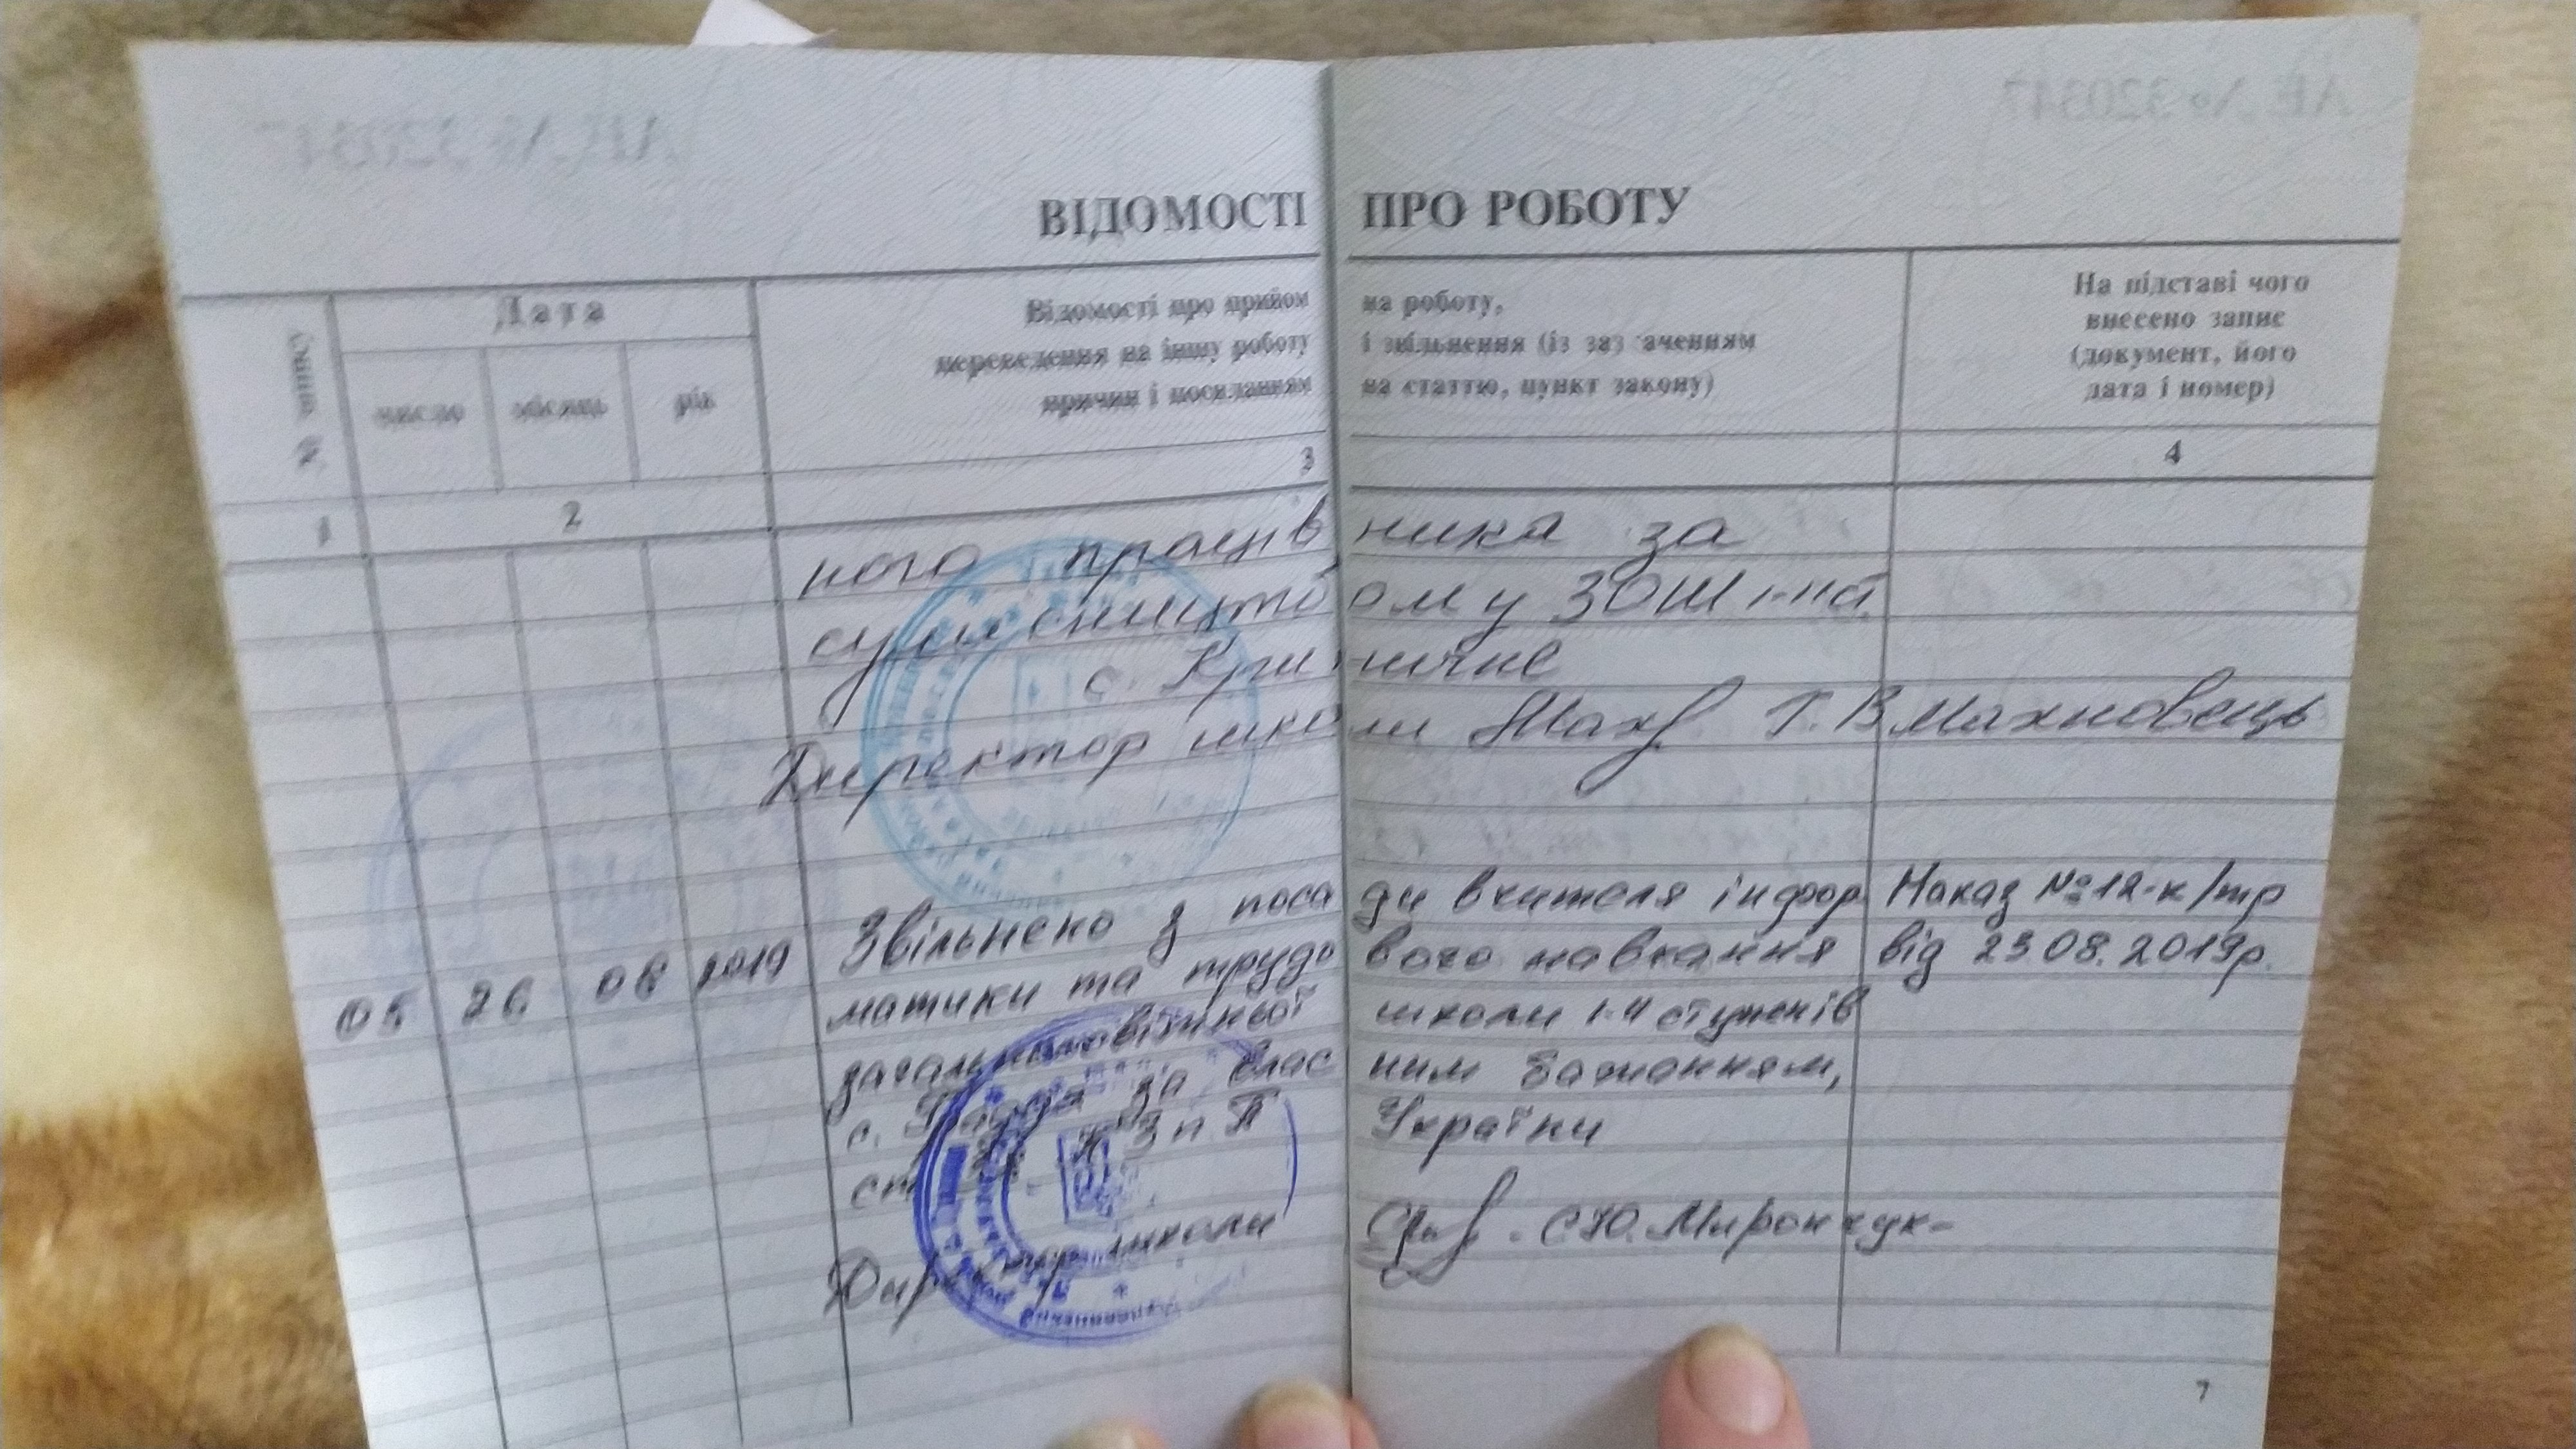 ВІДОМОСТІ ПРО РОБОТУ
№ запису
Дата
число місяць рік
Відомості про прийом на роботу,
переведення на іншу роботу і звільнення (із зазначенням
причин і посиланням на статтю, пункт закону)
На підставі чого
внесено запис
(документ, його
дата і номер)
1 2 3 4
ного працівника за
сумісництвом у ЗОШ І-ІІ ст.
с. Криничне
Директор школи Т. В Махновець
05 26 08 2019 Звільнено з посади вчителя інфор Наказ № 12-к/тр
матики та трудового навчання від 23 08. 2019р.
загальноосвітньої школи І-ІІ ступенів
с. за власним бажанням,
ст. КЗпП України
Директор школи С.Ю. Мирончук
7